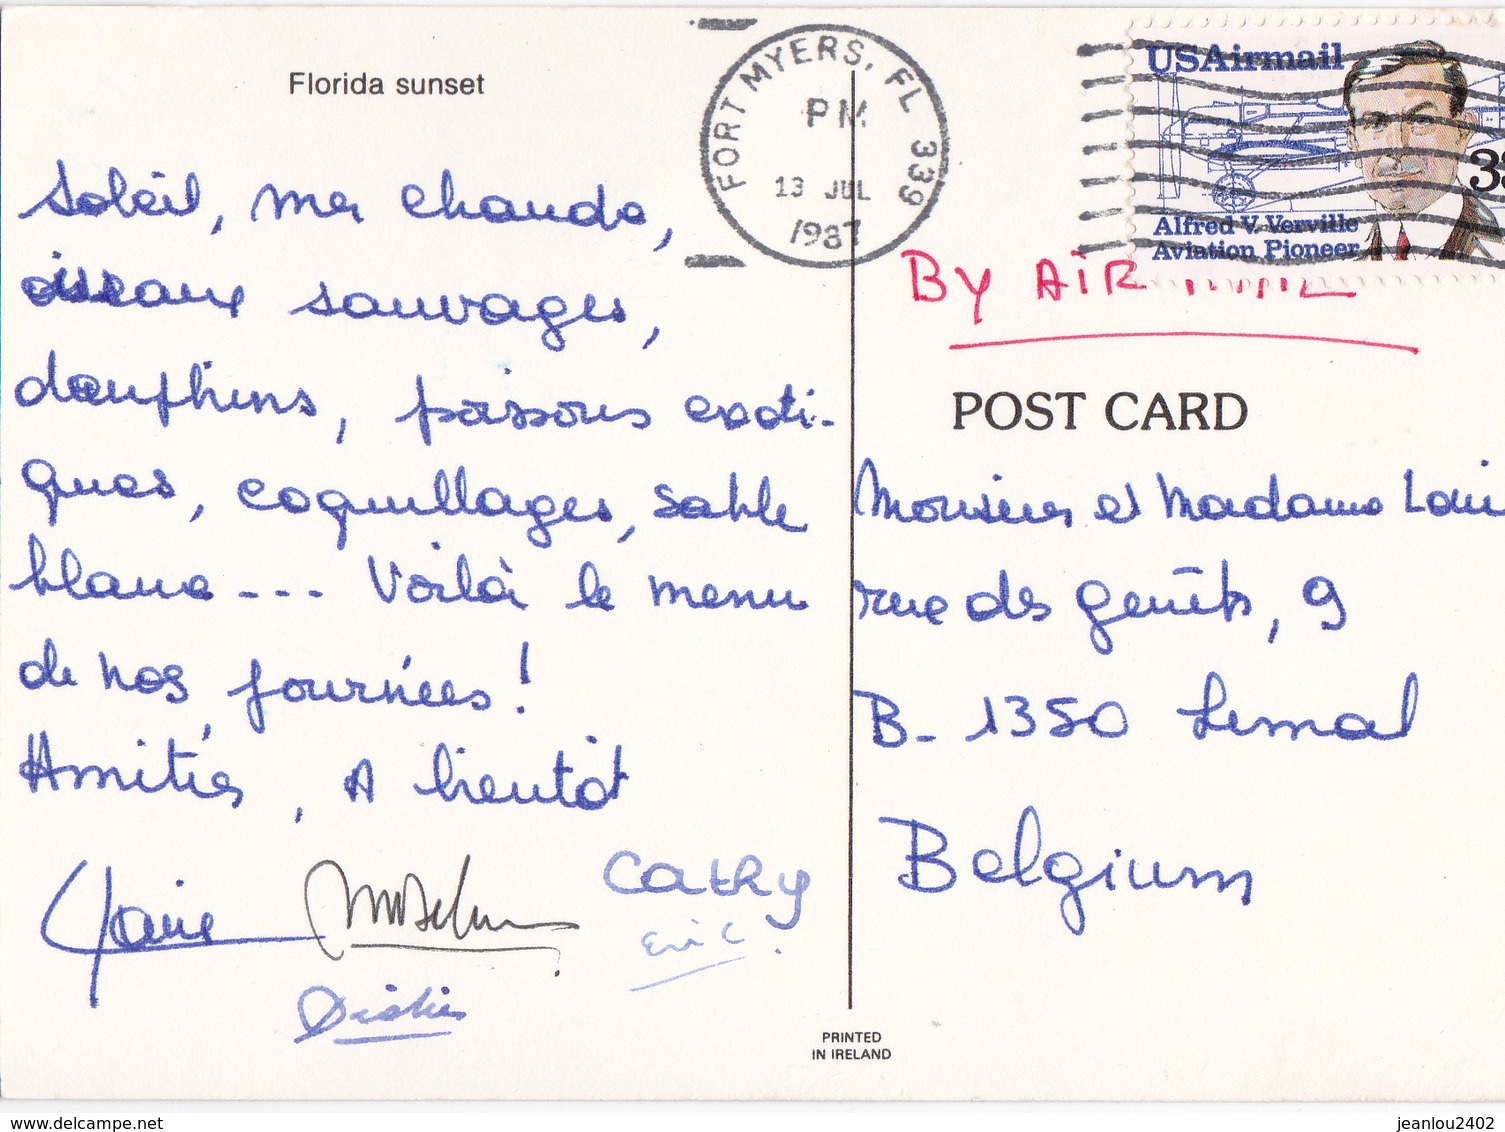 Florida sunset
Soleil, mer chaude,
oiseaux sauvages,
dauphins, poissons exoti-
ques, coquillages, sable
blanc --- Voilà le menu
de nos journées!
Amitiés, A bientôt
Claire
Cathy
Eric
Didier
FORT MYERS, FL 339
PM
13 JUL
1987
USAirmail
33
Alfred V. Verville
Aviation Pioneer
BY AIR MAIL
POST CARD
Monsieur et Madame Loui
rue des Genêts, 9
B- 1350 Limal
Belgium
PRINTED
IN IRELAND
delcampe.net
jeanlou2402